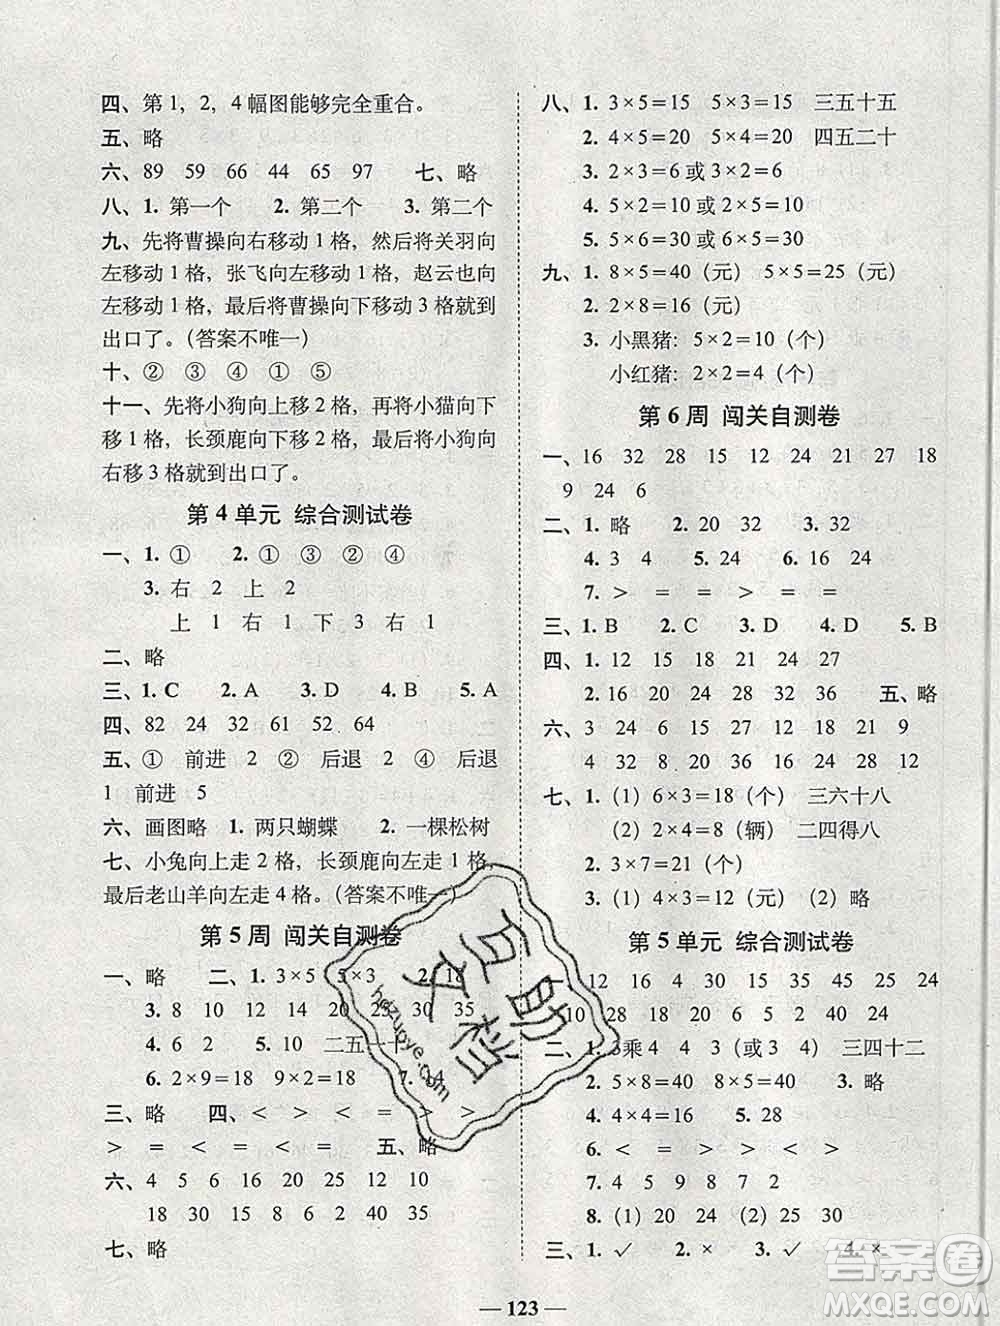 四、第 1，2，4 幅图能够完全重合。
五、略
六、89 59 66 44 65 97 七、略
八、1. 第一个 2. 第二个 3. 第二个
九、先将曹操向右移动 1 格，然后将关羽向
左移动 1 格，张飞向左移动 1 格，赵云也向
左移动 1 格，最后将曹操向下移动 3 格就到
出口了。（答案不唯一）
十、② ③ ④ ① ⑤
十一、先将小狗向上移 2 格，再将小猫向下
移 1 格，长颈鹿向左移 2 格，最后将小狗向
右移 3 格就到出口了。
第 4 单元 综合测试卷
一、1. ① 2. ① ③ ② ④
3. 右 2 上 2
上 1 右 1 下 3 右 1
二、略
三、1. C 2. A 3. D 4. B 5. A
四、82 24 32 61 52 64
五、① 前进 3 ② 后退 2 ④ 后退
1 前进 5
六、画图略 1. 两只蝴蝶 2. 一棵松树
七、小兔向上走 2 格，长颈鹿向左走 1 格，
最后老山羊向左走 4 格。（答案不唯一）
第 5 周 闯关自测卷
一、略 二、1. 3×5 5×3 2. 18
3. 8 10 12 20 25 30 35
4. 6 12 5. 10 二五一十
6. 2×9=18 9×2=18 7. 14
三、略 四、< > < = > >
> = < = < = 五、略
六、4 5 6 16 20 25 10 12
18 30 15 9 8 40 35 45
七、略
八、1. 3×5=15 5×3=15 三五十五
2. 4×5=20 5×4=20 四五二十
3. 2×3=6 或 3×2=6
4. 5×2=10 或 2×5=10
5. 5×6=30 或 6×5=30
九、1. 8×5=40（元） 5×5=25（元）
2. 2×8=16（元）
3. 小黑猪：5×2=10（个）
小红猪：2×2=4（个）
第 6 周 闯关自测卷
一、16 32 28 15 12 24 21 27 18
9 24 6
二、1. 略 2. 20 32 3. 32
4. 3 4 5. 24 6. 16 24
7. > = > = > =
三、1. B 2. C 3. D 4. D 5. B
四、1. 12 15 18 24 27
2. 16 20 24 28 32 36 五、略
六、3 24 6 28 27 18 21 9
4 8 32 12 30 15 20 18
七、1. （1）6×3=18（个） 三六十八
（2）2×4=8（辆） 二四得八
2. 3×7=21（个）
3. （1）4×3=12（元） （2）略
第 5 单元 综合测试卷
12 16 4 30 15 45 25 24
10 28 20 18 6 5 2 40 24
二、1. 3乘 4 4 3（或 3 4） 三四十二
2. 5×8=40 8×5=40 3. 略
4. 4×4=16 5. 28
6. < > = > < = < >
7. 4 5 9 8 7 2
8. （1）20 24 （2）25 30
三、1. ✓ 2. × 3. ✓ 4. ×
123
互助文档
hdzuoye.com
答案圈
MXQE.COM